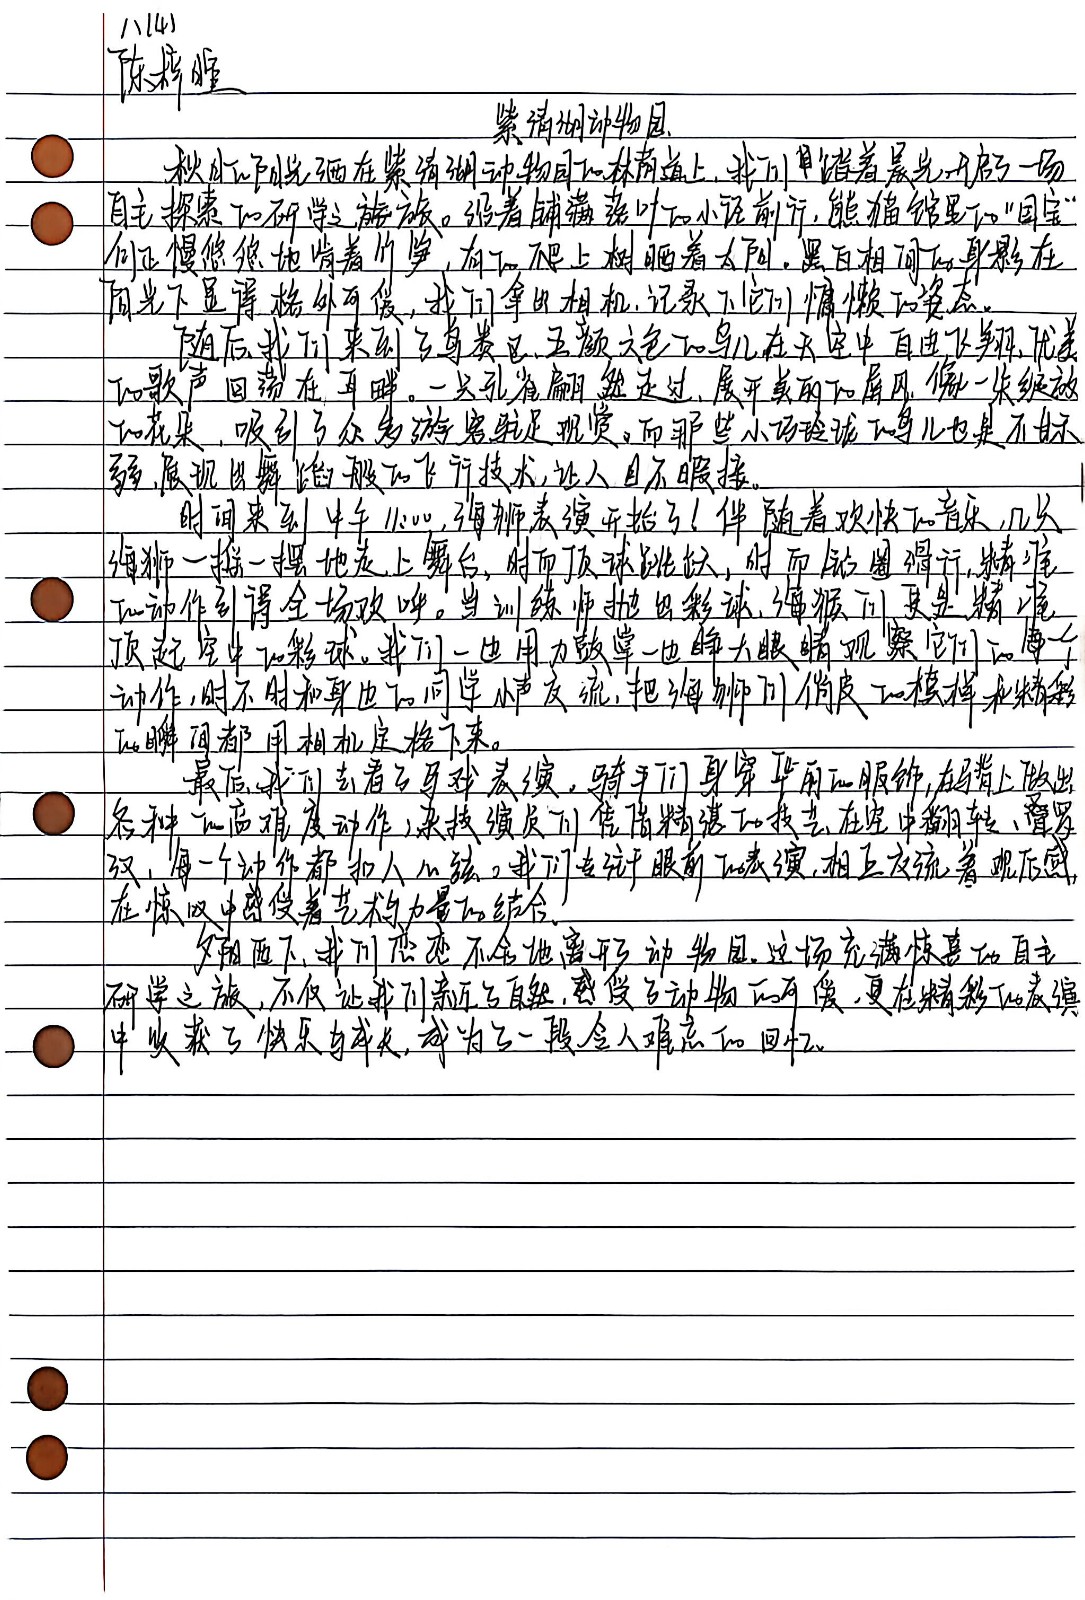 八(4)
陈梓睢
紫清湖动物园
秋日的阳光洒在紫清湖动物园的林荫道上，我们踏着晨光，开启了一场
自主探索的研学之旅。沿着铺满落叶的小径前行，熊猫馆里的“国宝”
们正慢悠悠地啃着竹笋，有的爬上树晒着太阳。黑白相间的身影在
阳光下显得格外可爱，我们拿出相机，记录下它们慵懒的姿态。
随后，我们来到了鸟类区，五颜六色的鸟儿在天空中自由飞翔，优美
的歌声回荡在耳畔。一只孔雀翩然走过，展开美丽的屏风，像一朵绽放
的花朵，吸引了众多游客驻足观赏。而那些小巧玲珑的鸟儿也是不甘示
弱，展现出舞蹈般的飞行技术，让人目不暇接。
时间来到中午11:00，海狮表演开始了！伴随着欢快的音乐，几只
海狮一摇一摆地走上舞台，时而顶球跳跃，时而钻圈滑行，精准
的动作引得全场欢呼。当训练师抛出彩球，海猴们更是精准
顶起空中的彩球。我们一边用力鼓掌一边睁大眼睛观察它们的每个
动作，时不时和身边的同学小声交流，把海狮们俏皮的模样和精彩
的瞬间都用相机定格下来。
最后，我们去看了马戏表演。骑手们身穿华丽的服饰，在马背上做出
各种的高难度动作，杂技演员们凭借精湛的技艺，在空中翻转、叠罗
汉，每一个动作都扣人心弦。我们专注于眼前的表演，相互交流着观后感，
在惊叹中感受着艺术与力量的结合。
夕阳西下，我们恋恋不舍地离开了动物园。这场充满惊喜的自主
研学之旅，不仅让我们亲近了自然，感受了动物的可爱，更在精彩的表演
中收获了快乐与成长，成为了一段令人难忘的回忆。